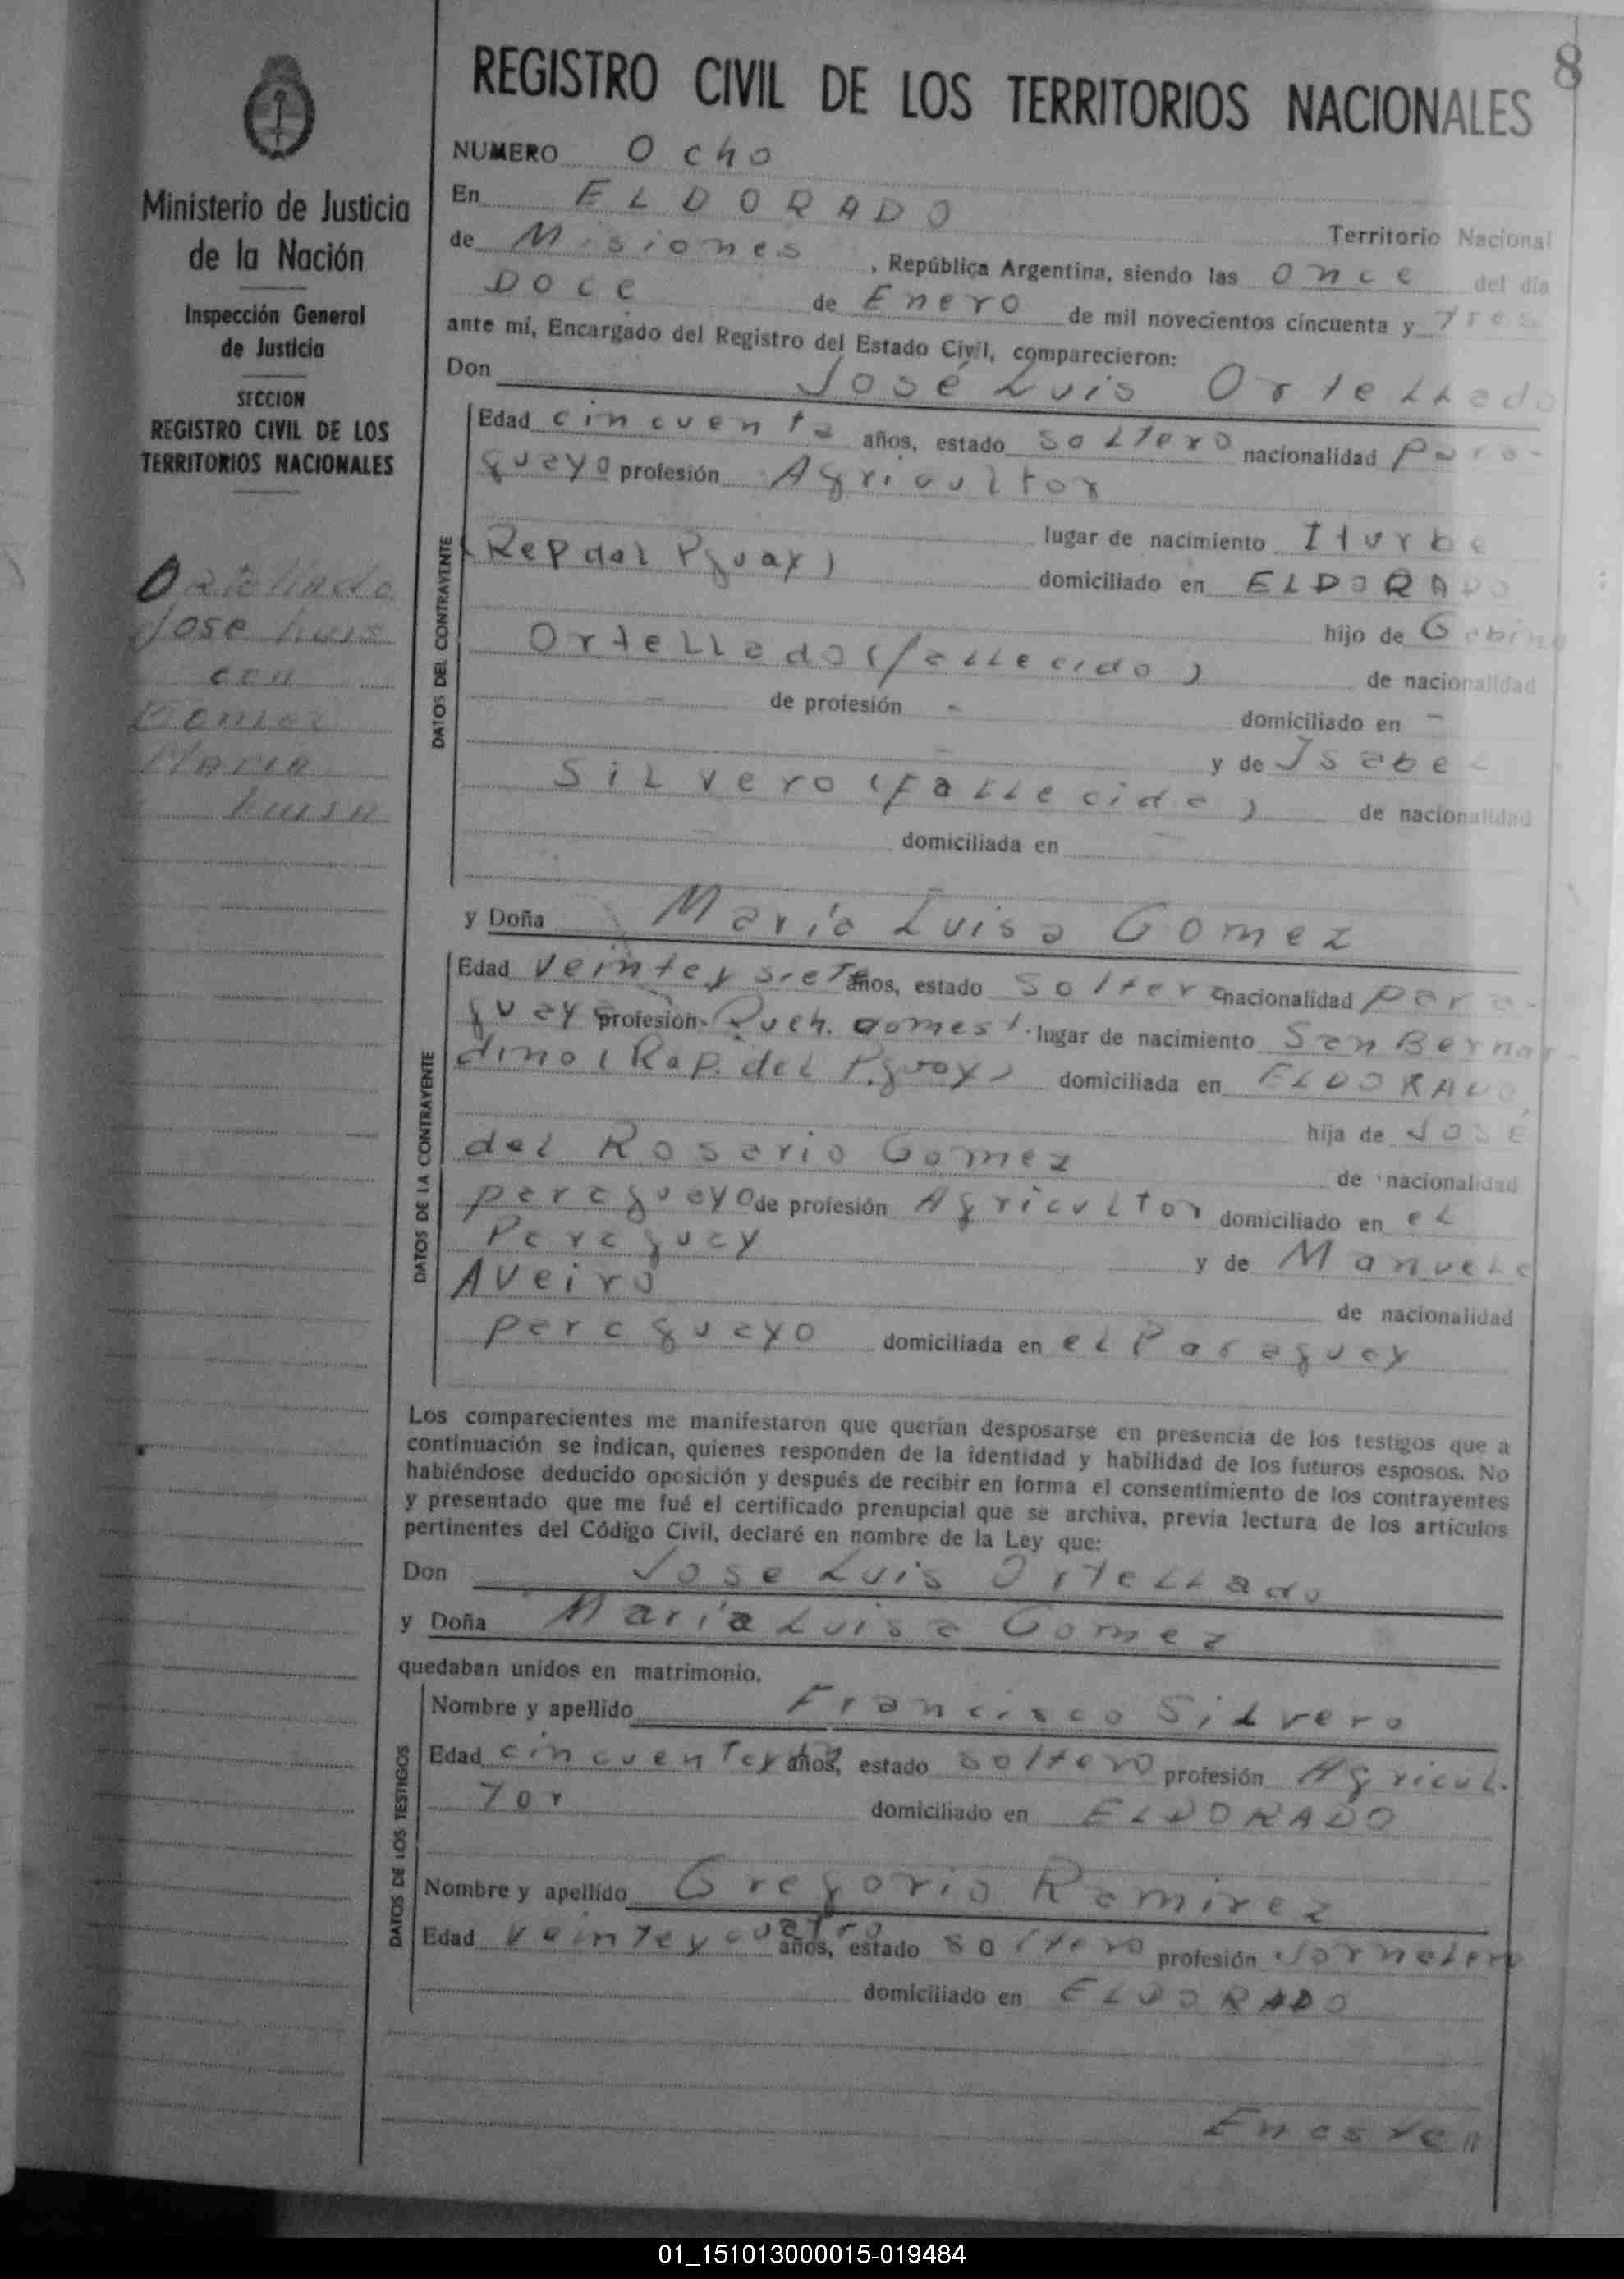 8
REGISTRO CIVIL DE LOS TERRITORIOS NACIONALES
Ministerio de Justicia
de la Nación
Inspección General
de Justicia
SECCION
REGISTRO CIVIL DE LOS
TERRITORIOS NACIONALES
Ortellado
Jose Luis
con
Gomez
Maria
Luisa
NUMERO Ocho
En ELDORADO
Territorio Nacional
de Misiones, República Argentina, siendo las once del día
Doce de Enero de mil novecientos cincuenta y Tres
ante mí, Encargado del Registro del Estado Civil, comparecieron:
Don José Luis Ortellado
DATOS DEL CONTRAYENTE
Edad cincuenta años, estado soltero nacionalidad para-
guayo profesión Agricultor
lugar de nacimiento Iturbe
(Rep del Pguay) domiciliado en ELDORADO
hijo de Gabino
Ortellado (fallecido) de nacionalidad
- de profesión - domiciliado en -
y de Isabel
Silvero (fallecida) de nacionalidad
- domiciliada en -
y Doña María Luisa Gomez
DATOS DE LA CONTRAYENTE
Edad veintey siete años, estado soltera nacionalidad para-
guaya profesión Queh. domest. lugar de nacimiento San Bernar-
dino (Rep. del P.guay) domiciliada en ELDORADO
hija de José
del Rosario Gomez de nacionalidad
paraguayo de profesión Agricultor domiciliado en el
Paraguay y de Manuela
Aveiro de nacionalidad
paraguayo domiciliada en el Paraguay
Los comparecientes me manifestaron que querían desposarse en presencia de los testigos que a
continuación se indican, quienes responden de la identidad y habilidad de los futuros esposos. No
habiéndose deducido oposición y después de recibir en forma el consentimiento de los contrayentes
y presentado que me fué el certificado prenupcial que se archiva, previa lectura de los artículos
pertinentes del Código Civil, declaré en nombre de la Ley que:
Don Jose Luis Ortellado
y Doña María Luisa Gomez
quedaban unidos en matrimonio.
DATOS DE LOS TESTIGOS
Nombre y apellido Francisco Silvero
Edad años, estado soltero profesión Agricul-
tor domiciliado en ELDORADO
Nombre y apellido Gregorio Ramirez
Edad veinteycuatro años, estado soltero profesión Jornalero
domiciliado en ELDORADO
01_151013000015-019484